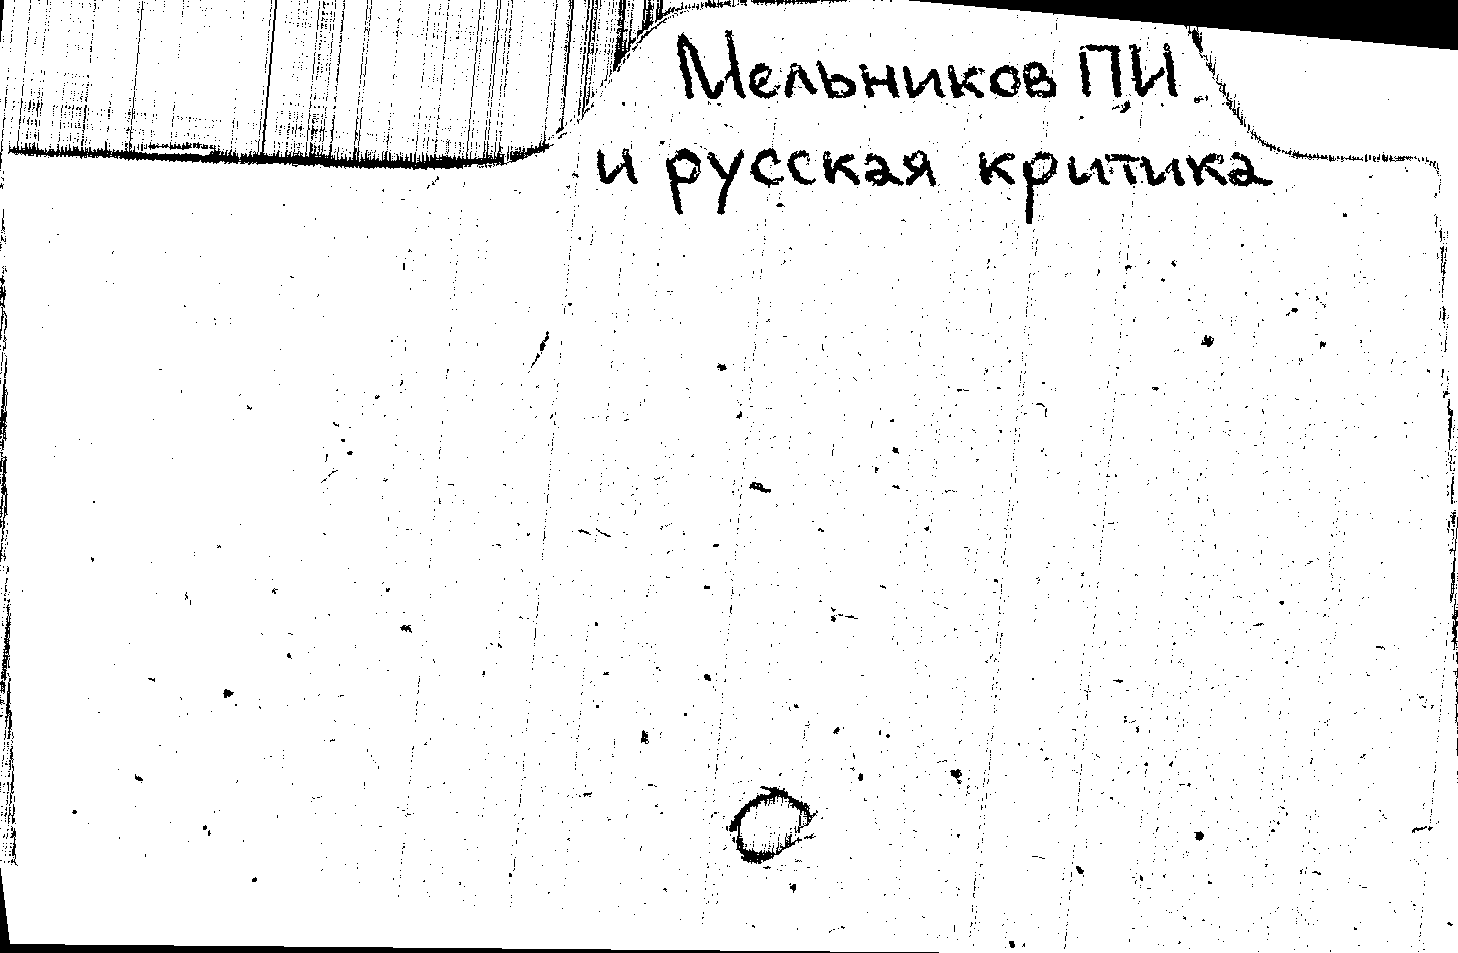 Мельников П.И.
и русская критика